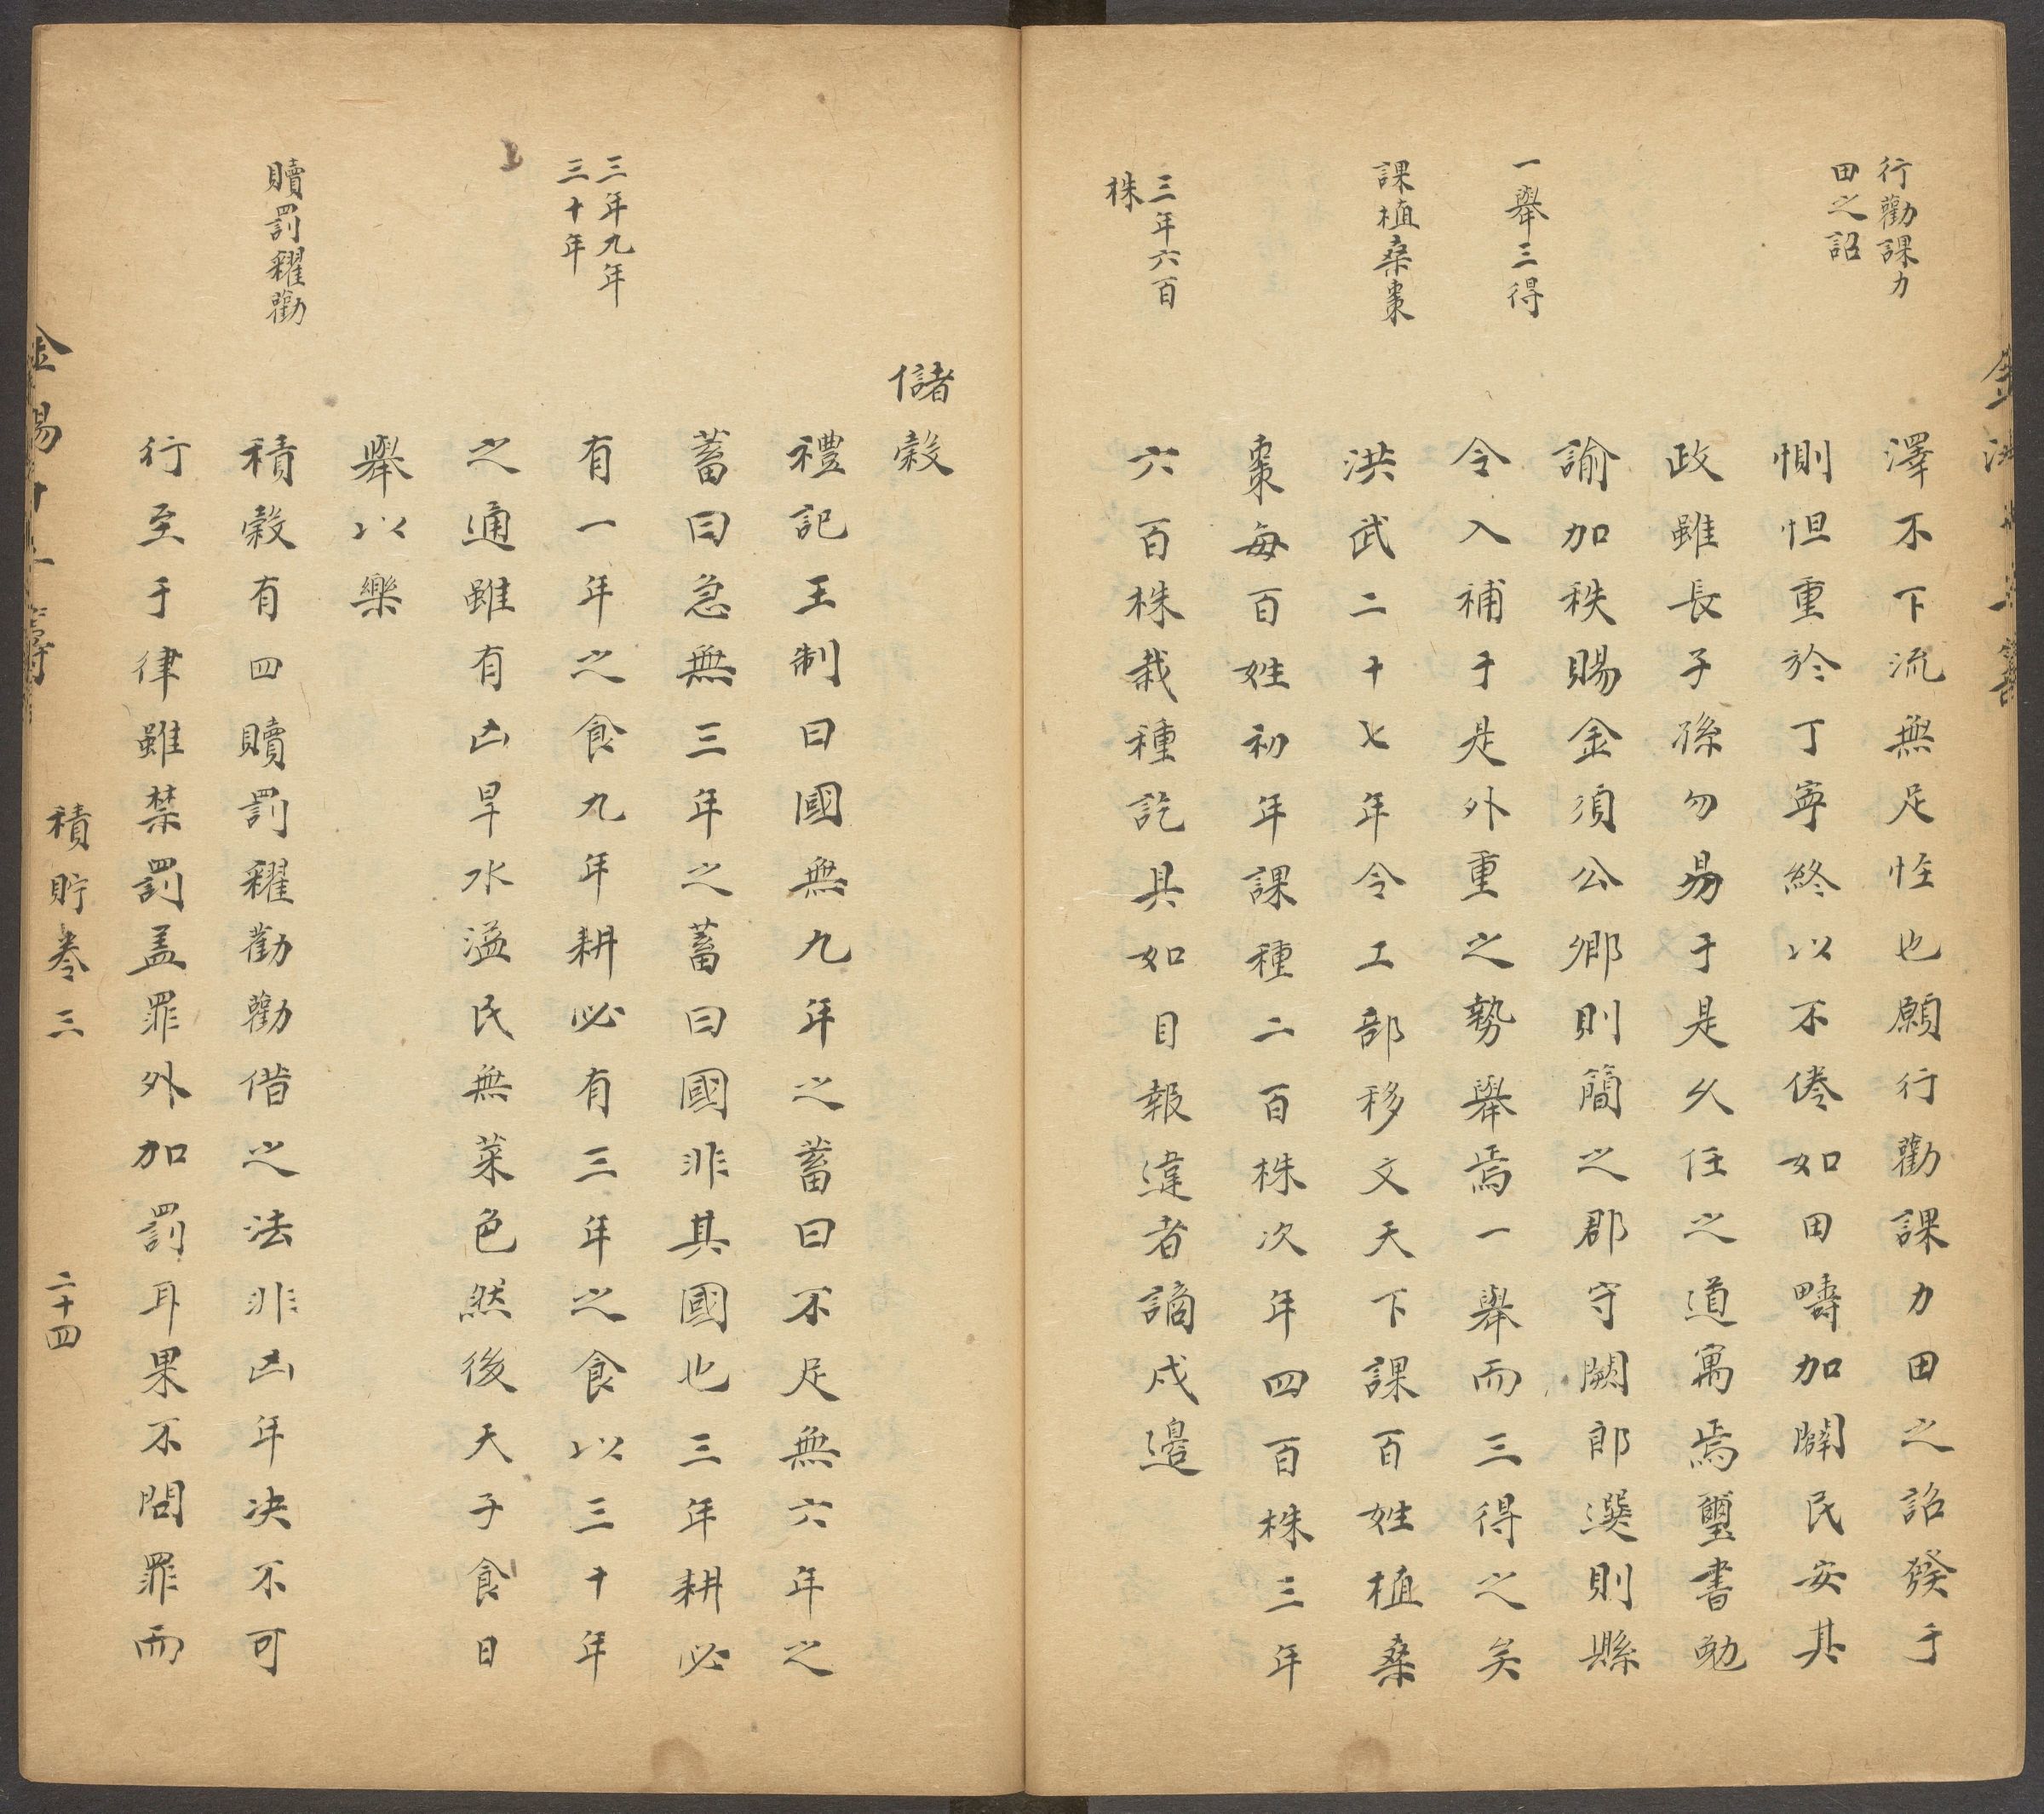 行勸課力
田之詔
一舉三得
課植桑棗
三年六百
株
澤不下流無足怪也願行勸課力田之詔發于
惻怛重於丁寧終以不倦如田疇加闢民安其
政雖長子孫勿易于是久任之道寓焉璽書勉
諭加秩賜金須公卿則簡之郡守闕郎選則縣
令入補于是外重之勢舉焉一舉而三得之矣
洪武二十七年令工部移文天下課百姓植桑
棗每百姓初年課種二百株次年四百株三年
六百株栽種訖具如目報違者謫戍邊
三年九年
三十年
贖罰糴勸
儲穀
禮記王制曰國無九年之蓄曰不足無六年之
蓄曰急無三年之蓄曰國非其國也三年耕必
有一年之食九年耕必有三年之食以三十年
之通雖有凶旱水溢民無菜色然後天子食日
舉以樂
積穀有四贖罰糴勸勸借之法非凶年决不可
行至于律雖禁罰盖罪外加罰耳果不問罪而
積貯卷三
二十四